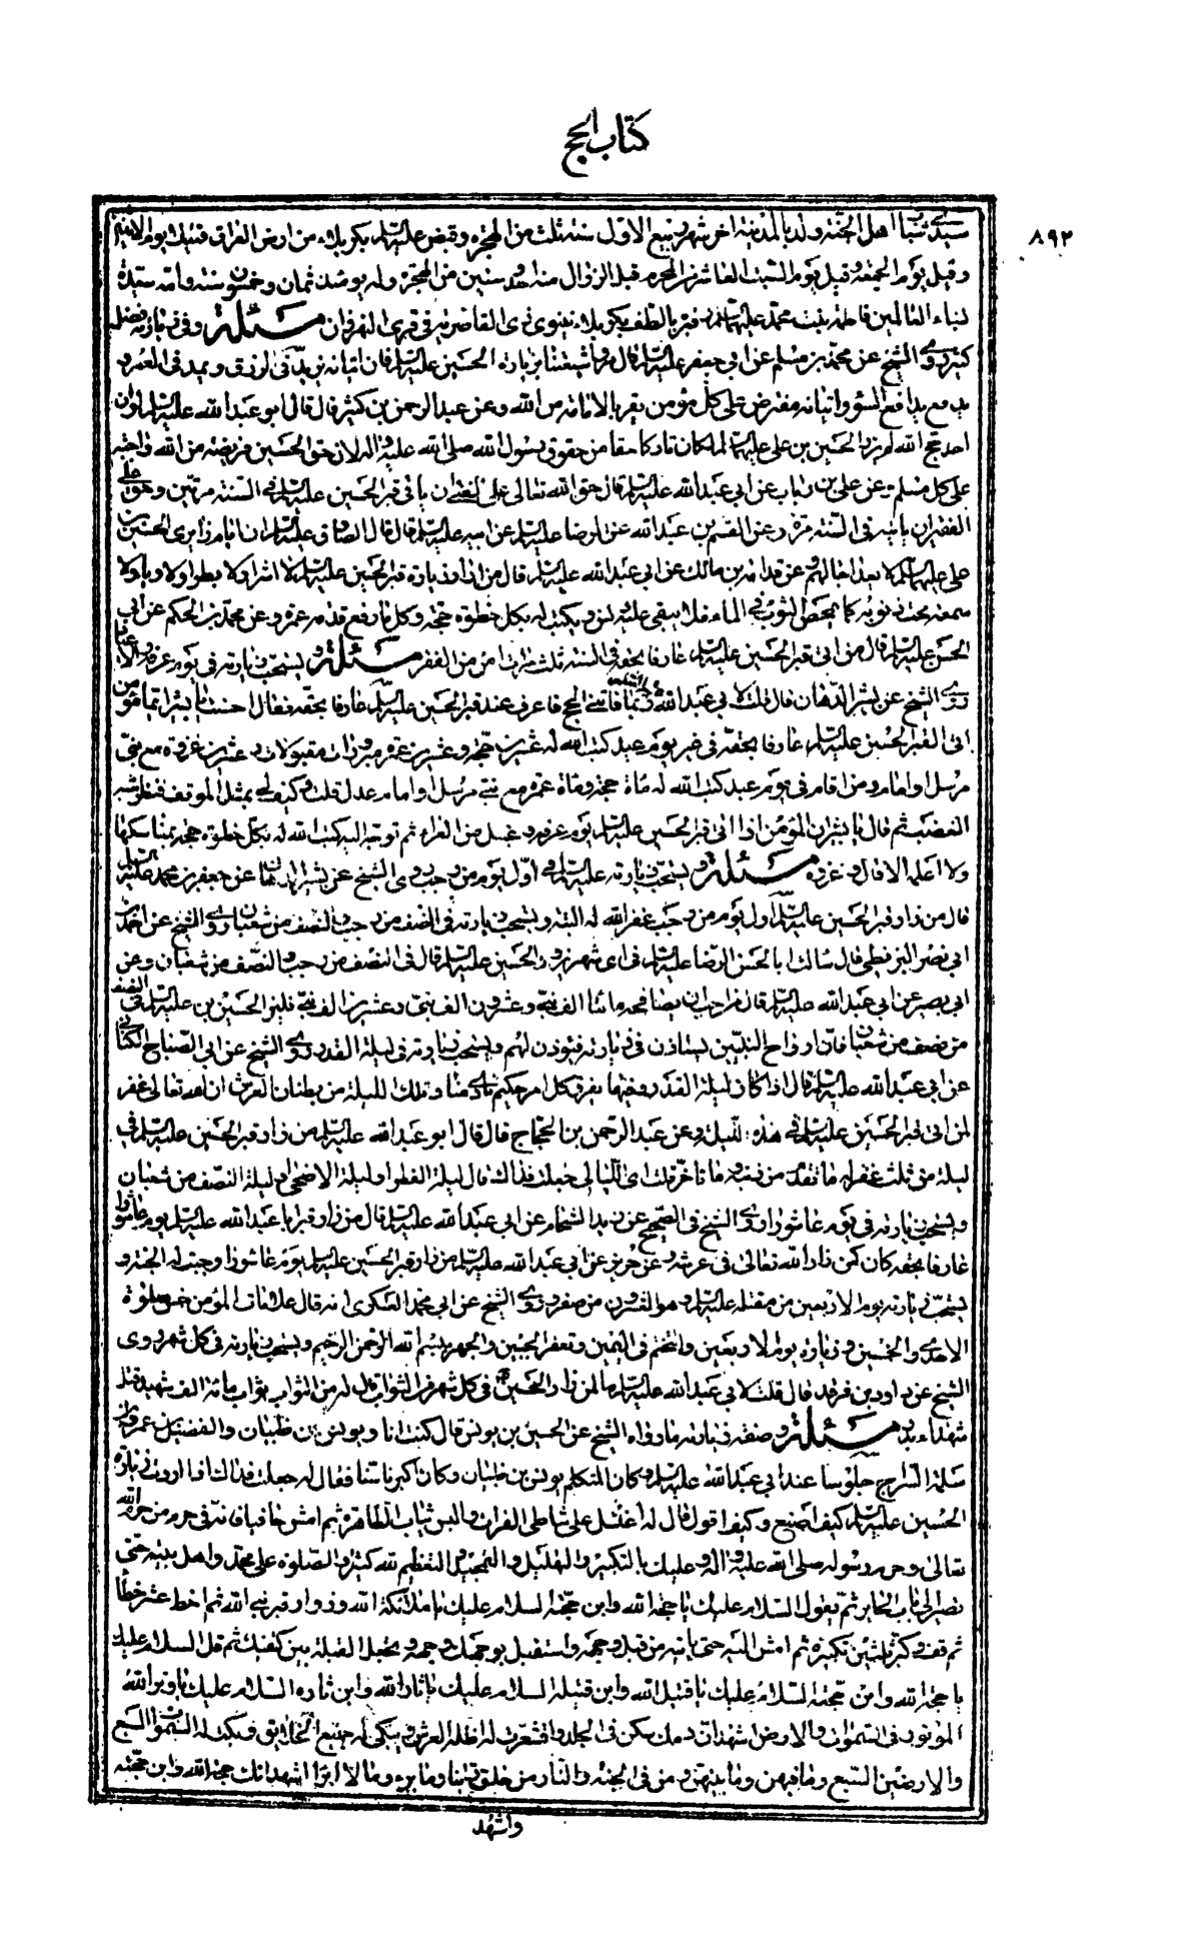 كتاب الحج
٨٩٢
سيدى شباب اهل الجنة ولد بالمدينة اخر شهر ربيع الاول سنة ثلث من الهجرة وقبض عليه السلم بكربلاء من ارض العراق قتيلا يوم الاثنين
وقيل يوم الجمعة وقيل يوم السبت العاشر من المحرم قبل الزوال سنة احدى وستين من الهجرة وله يومئذ ثمان وخمسون سنة وامه سيدة
نساء العالمين فاطمة بنت محمد عليهما السلم قبره بالطف بكربلاء بنينوى قرى الغاضرية فى قرى النهرين مسئلة وفى زيارته فضل
كثير روى الشيخ عن محمد بن مسلم عن ابى جعفر عليه السلم قال مروا شيعتنا بزيارة الحسين عليه السلم فان اتيانه يزيد فى الرزق ويمد فى العمر و
يدفع مدافع السوء واتيانه مفترض على كل مؤمن يقر بالامامة من الله وعن عبد الرحمن بن كثير قال قال ابو عبد الله عليه السلم لو ان
احدكم حج الله لم يزر الحسين بن على عليهما السلم لكان تاركا حقا من حقوق رسول الله صلى الله عليه واله لان حق الحسين فريضة من الله واجبة
على كل مسلم وعن على بن رئاب عن ابى عبد الله عليه السلم قال حق الله تعالى على الغنى ان ياتى قبر الحسين عليه السلم فى السنة مرتين وحق على
الفقير ان ياتيه فى السنة مرة وعن القسم بن عبد الله عن الرضا عليه السلم عن ابيه عليه السلم قال قال الصادق عليه السلم ان ايام زايرى الحسين بن
على عليهما السلم لا تعد من اجالهم وعن قدامة بن مالك عن ابى عبد الله عليه السلم قال من اراد زيارة قبر الحسين عليه السلم لا اشرا ولا بطرا ولا رياء ولا
سمعة محصت ذنوبه كما يمحص الثوب فى الماء فلا يبقى عليه دنس ويكتب له بكل خطوة حجة وكل ما رفع قدمه عمرة وعن محمد بن الحكم عن ابى
الحسن عليه السلم قال من اتى قبر الحسين عليه السلم عارفا بحقه فى السنة ثلث مرات امن من الفقر مسئلة ويستحب زيارته فى يوم عرفة والاعياد
روى الشيخ عن بشير الدهان قال قلت لابى عبد الله عليه السلم ربما فاتنى الحج فاعرف عند قبر الحسين عليه السلم عارفا بحقه فقال احسنت يا بشير ايما مؤمن
اتى القبر الحسين عليه السلم عارفا بحقه فى غير يوم عيد كتب الله له عشرين حجة وعشرين عمرة مبرورات مقبولات وعشرين غزوة مع نبى
مرسل او امام ومن اقام فى يوم عيد كتب الله له ماة حجة وماة عمرة مع نبى مرسل او امام عدل قلت وكيف لى بمثل الموقف فنظر شبه
الغضب ثم قال يا بشير ان المؤمن اذا اتى قبر الحسين عليه السلم يوم عرفة وغسل من الفرات ثم توجه اليه كتب الله له بكل خطوة حجة بمناسكها
ولا اعلمه الا قال وغزوة مسئلة ويستحب زيارته عليه السلم فى اول يوم من رجب روى الشيخ عن بشير الدهان عن جعفر بن محمد عليه السلم
قال من زار قبر الحسين عليه السلم اول يوم من رجب غفر الله له البتة ويستحب زيارته فى النصف من رجب والنصف من شعبان روى الشيخ عن احمد بن
ابى نصر البزنطى قال سالت ابا الحسن الرضا عليه السلم فى اى شهر نزور الحسين عليه السلم قال فى النصف من رجب والنصف من شعبان وعن
ابى بصير عن ابى عبد الله عليه السلم قال من احب ان يصافحه مائتا الف نبى وعشرون الف نبى وعشرين الف نبى فليزر الحسين بن على عليه السلم فى النصف
من نصف من شعبان فان ارواح النبيين يستاذن فى زيارته فيؤذن لهم ويستحب زيارته فى ليلة القدر روى الشيخ عن ابى الصباح الكنانى
عن ابى عبد الله عليه السلم قال اذا كان ليلة القدر وفيها يفرق كل امر حكيم نادى مناد تلك الليلة من بطنان العرش ان الله تعالى غفر
لمن اتى قبر الحسين عليه السلم فى هذه الليلة وعن عبد الرحمن بن الحجاج قال قال ابو عبد الله عليه السلم من زار قبر الحسين عليه السلم فى
ليلة من ثلث غفر له ما تقدم من ذنبه وما تاخر قلت اى الليالى جعلت فداك قال ليلة الفطر او ليلة الاضحى او ليلة النصف من شعبان
ويستحب زيارته فى يوم عاشورا روى الشيخ فى الصحيح عن زيد الشحام عن ابى عبد الله عليه السلم قال من زار قبر ابا عبد الله عليه السلم يوم عاشورا
عارفا بحقه كان كمن زار الله تعالى فى عرشه وعن حريز عن ابى عبد الله عليه السلم من زار قبر الحسين عليه السلم يوم عاشورا وجبت له الجنة و
يستحب زيارته يوم الاربعين من مقتله عليه السلم وهو العشرون من صفر روى الشيخ عن ابى محمد العسكرى انه قال علامات المؤمن خمس صلوة
الاحدى والخمسين وزيارة يوم الاربعين والتختم فى اليمين وتعفير الجبين والجهر ببسم الله الرحمن الرحيم ويستحب زيارته فى كل شهر روى
الشيخ عن داود بن فرقد قال قلت لابى عبد الله عليه السلم ما لمن زار الحسين فى كل شهر من الثواب قال له من الثواب ثواب مائة الف شهيد مثل
شهداء بدر مسئلة وصفة زيارته ما رواه الشيخ عن الحسين بن يونس قال كنت انا ويونس بن ظبيان والفضيل بن عمر وابو
سلمة السراج جلوسا عند ابى عبد الله عليه السلم وكان المتكلم يونس بن ظبيان وكان اكبرنا سنا فقال له جعلت فداك اذا اردت زيارة
الحسين عليه السلم كيف اصنع وكيف اقول قال له اغتسل على شاطى الفرات والبس ثياب الطاهرة ثم امش حافيا فانه فى حرم من حرم الله
تعالى وحرم رسوله صلى الله عليه واله وعليك بالتكبير والتهليل والتمجيد والتعظيم لله كثيرا والصلوة على محمد واهل بيته حتى
تصير الى باب الحاير ثم تقول السلام عليك يا حجة الله وابن حجته السلام عليك يا ملائكة الله وزوار قبر نبى الله ثم اخط عشر خطا
ثم قف وكبر ثلثين تكبيرة ثم امش اليه حتى ياتيه من قبل وجهه واستقبل بوجهك وجهه وتجعل القبلة بين كتفيك ثم قل السلام عليك
يا حجة الله وابن حجته السلام عليك يا قتيل الله وابن قتيله السلام عليك يا ثار الله وابن ثاره السلام عليك يا وتر الله
الموتور فى السموات والارض اشهد ان دمك سكن فى الخلد واقشعرت له اظلة العرش وبكى له جميع الخلايق وبكت له السموات السبع
والارضين السبع وما فيهن وما بينهن ومن فى الجنة والنار من خلق ربنا وما يرى وما لا يرى اشهد انك حجة الله وابن حجته
واشهد